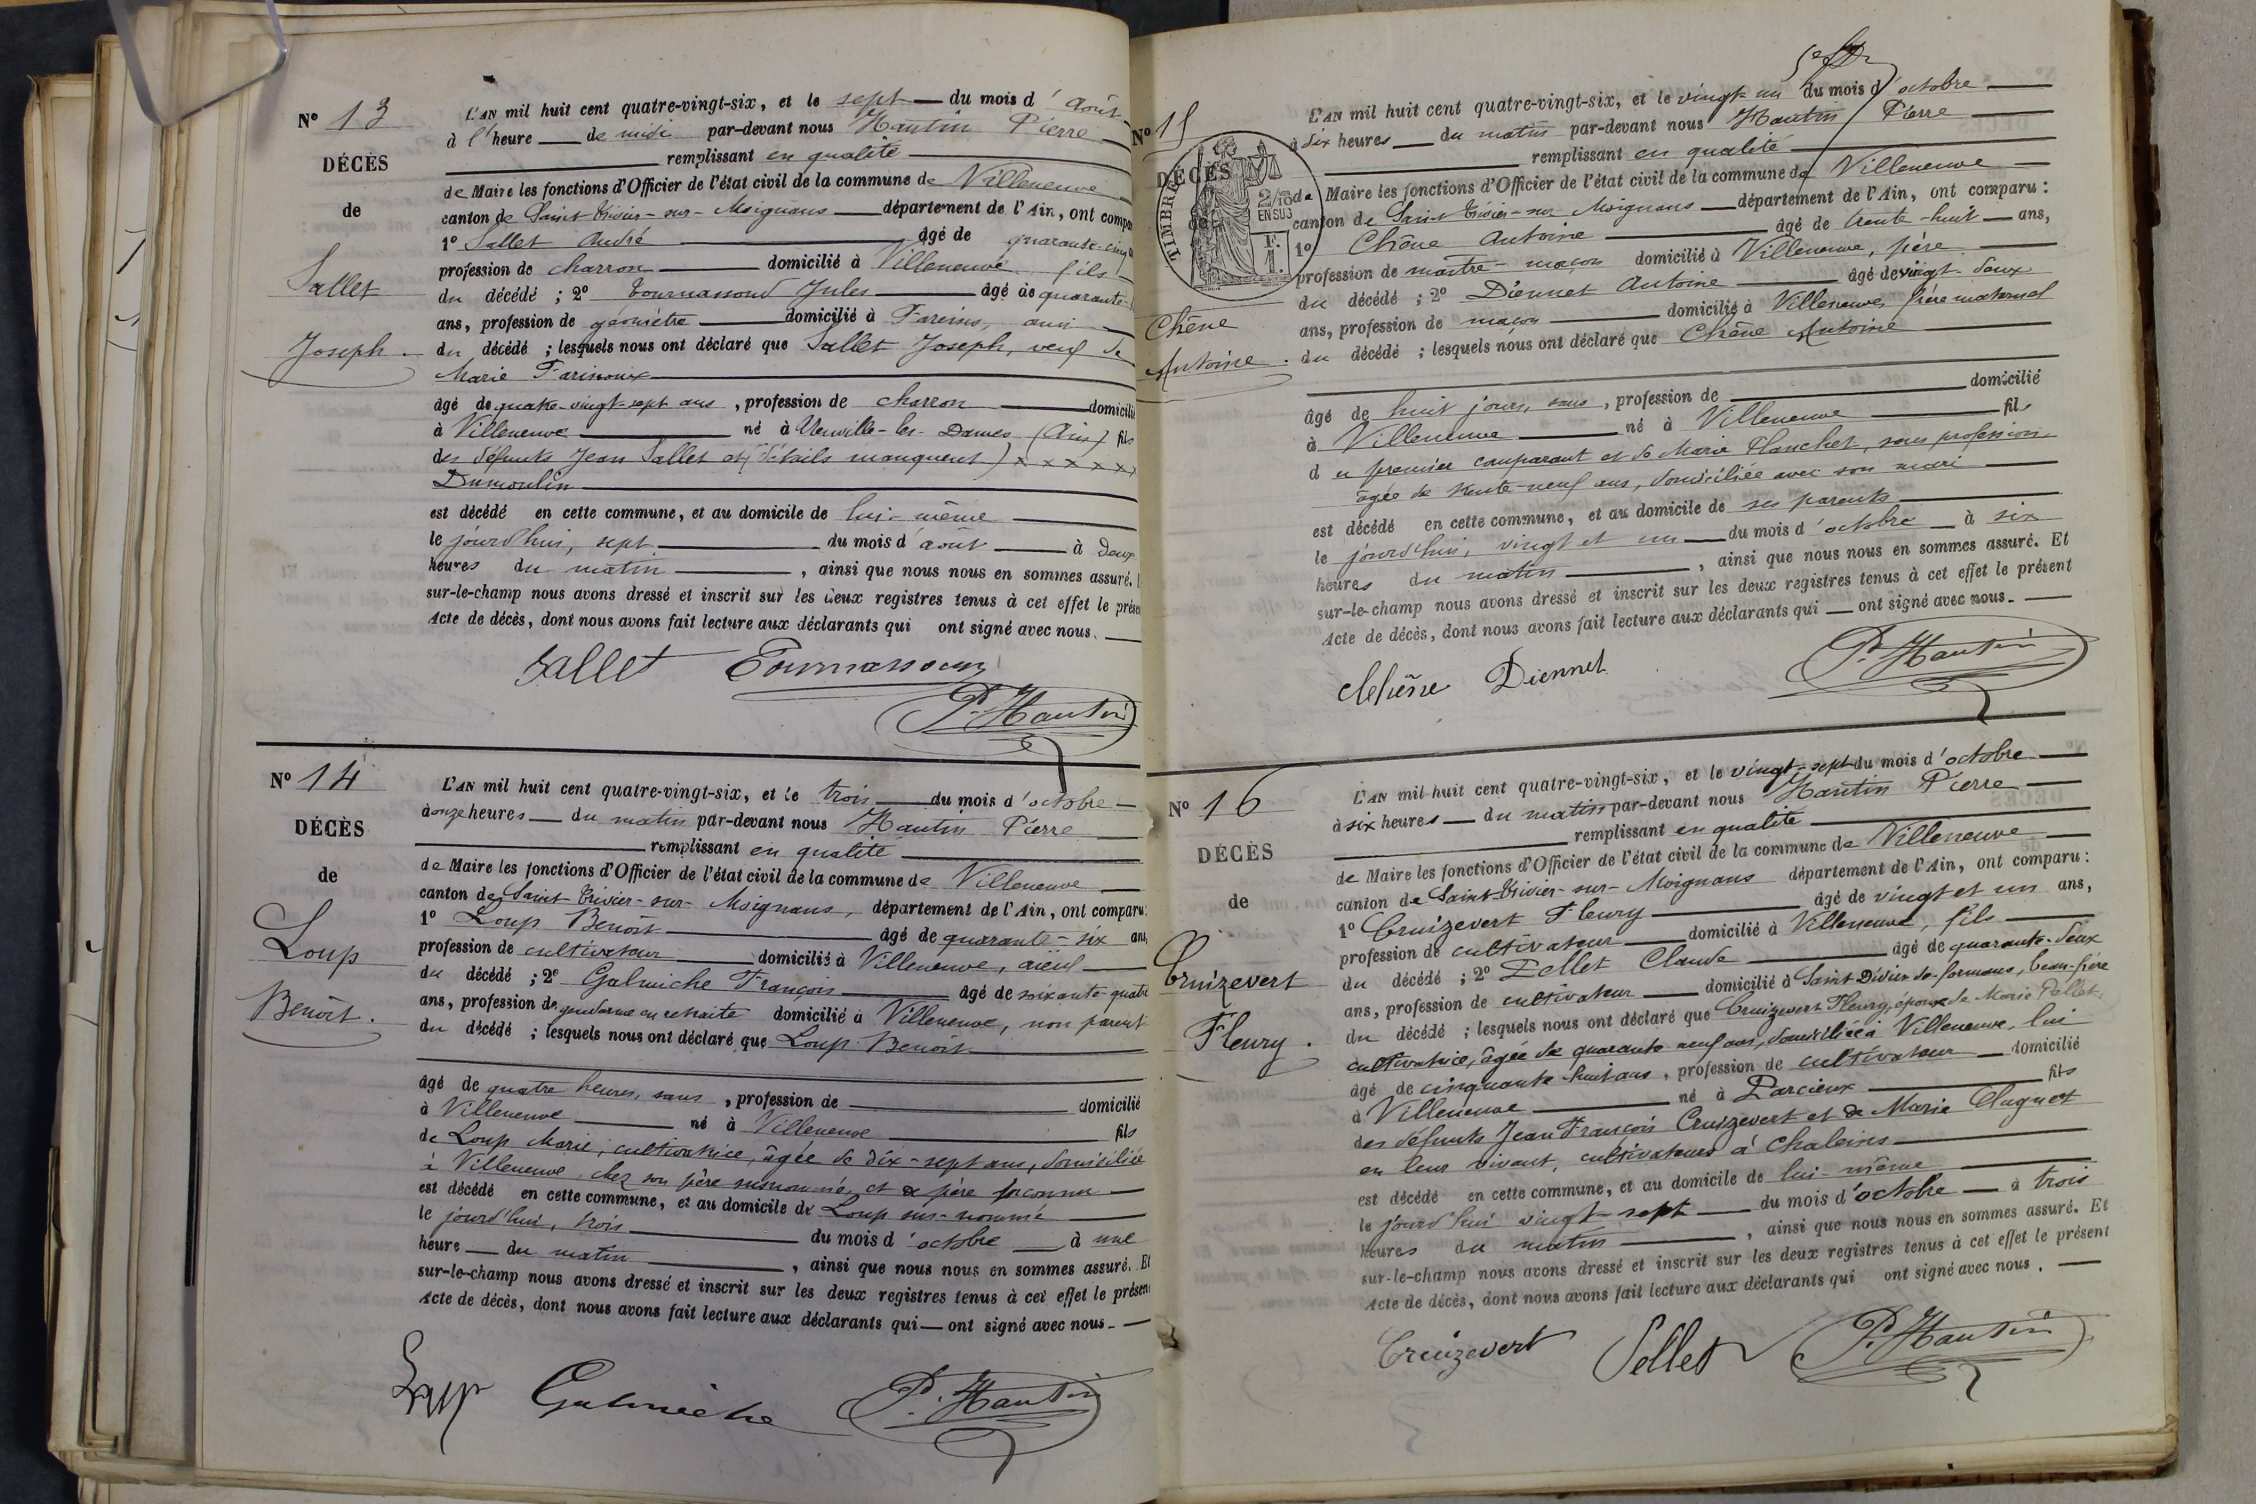 N° 13
DÉCÈS
de
Sallet
Joseph.
L'AN mil huit cent quatre-vingt-six, et le sept du mois d'août
à l'heure de midi par-devant nous Hautin Pierre
remplissant en qualité
de Maire les fonctions d'Officier de l'état civil de la commune de Villeneuve
canton de Saint Trivier-sur-Moignans département de l'Ain, ont compa
1° Sallet André âgé de quarante-cinq
profession de charron domicilié à Villeneuve fils
du décédé ; 2° Tournassoud Jules âgé de quarante-
ans, profession de géomètre domicilié à Fareins, ami
du décédé ; lesquels nous ont déclaré que Sallet Joseph, veuf de
Marie Farinoux
âgé de quatre-vingt-sept ans, profession de charron domicilié
à Villeneuve né à Neuville-les-Dames (Ain) fils
des défunts Jean Sallet et (détails manquent) x x x x x x
Dumoulin
est décédé en cette commune, et au domicile de lui-même
le jourd'hui, sept du mois d'août à deux
heures du matin, ainsi que nous nous en sommes assuré.
sur-le-champ nous avons dressé et inscrit sur les deux registres tenus à cet effet le prése
Acte de décès, dont nous avons fait lecture aux déclarants qui ont signé avec nous.
Sallet Tournassoud
P. Hautin
N° 14
DÉCÈS
de
Loup
Benoît.
L'AN mil huit cent quatre-vingt-six, et le trois du mois d'octobre
à onze heures du matin par-devant nous Hautin Pierre
remplissant en qualité
de Maire les fonctions d'Officier de l'état civil de la commune de Villeneuve
canton de Saint Trivier-sur-Moignans, département de l'Ain, ont comparu :
1° Loup Benoît âgé de quarante-six ans,
profession de cultivateur domicilié à Villeneuve, aïeul
du décédé ; 2° Galmiche François âgé de soixante-quatre
ans, profession de gendarme en retraite domicilié à Villeneuve, non parent
du décédé ; lesquels nous ont déclaré que Loup Benoît
âgé de quatre heures, sans, profession de domicilié
à Villeneuve né à Villeneuve fils
de Loup Marie, cultivatrice, âgée de dix-sept ans, domiciliée
à Villeneuve, chez son père susnommé, et de père inconnu
est décédé en cette commune, et au domicile de Loup sus-nommé
le jourd'hui, trois du mois d'octobre à une
heure du matin, ainsi que nous nous en sommes assuré. Et
sur-le-champ nous avons dressé et inscrit sur les deux registres tenus à cet effet le présent
Acte de décès, dont nous avons fait lecture aux déclarants qui ont signé avec nous.
Loup Galmiche P. Hautin
N° 15
DÉCÈS
TIMBRE
2/10
EN SUS
F.
1.
Chêne
Antoine.
L'AN mil huit cent quatre-vingt-six, et le vingt-un du mois d'octobre
à six heures du matin par-devant nous Hautin Pierre
remplissant en qualité
de Maire les fonctions d'Officier de l'état civil de la commune de Villeneuve
canton de Saint Trivier-sur-Moignans département de l'Ain, ont comparu :
1° Chêne Antoine âgé de trente-huit ans,
profession de maître-maçon domicilié à Villeneuve, père
du décédé ; 2° Diennet Antoine âgé de vingt-deux
ans, profession de maçon domicilié à Villeneuve, frère maternel
du décédé ; lesquels nous ont déclaré que Chêne Antoine
âgé de huit jours, sans, profession de domicilié
à Villeneuve né à Villeneuve fils
du premier comparant et de Marie Planchet, sans profession
âgée de trente-neuf ans, domiciliée avec son mari
est décédé en cette commune, et au domicile de ses parents
le jourd'hui, vingt et un du mois d'octobre à six
heures du matin, ainsi que nous nous en sommes assuré. Et
sur-le-champ nous avons dressé et inscrit sur les deux registres tenus à cet effet le présent
Acte de décès, dont nous avons fait lecture aux déclarants qui ont signé avec nous.
Chêne Diennet P. Hautin
N° 16
DÉCÈS
de
Cruizevert
Fleury.
L'AN mil huit cent quatre-vingt-six, et le vingt-sept du mois d'octobre
à six heures du matin par-devant nous Hautin Pierre
remplissant en qualité
de Maire les fonctions d'Officier de l'état civil de la commune de Villeneuve
canton de Saint-Trivier-sur-Moignans département de l'Ain, ont comparu :
1° Cruizevert Fleury âgé de vingt et un ans,
profession de cultivateur domicilié à Villeneuve, fils
du décédé ; 2° Pellet Claude âgé de quarante-deux
ans, profession de cultivateur domicilié à Saint Didier-de-formans, beau-frère
du décédé ; lesquels nous ont déclaré que Cruizevert Fleury, époux de Marie Pellet,
cultivatrice, âgée de quarante neuf ans, domiciliée à Villeneuve, lui
âgé de cinquante-huit ans, profession de cultivateur domicilié
à Villeneuve né à Parcieux fils
des défunts Jean François Cruizevert et de Marie Claguet
en leur vivant, cultivateurs à Chaleins
est décédé en cette commune, et au domicile de lui-même
le jourd'hui vingt-sept du mois d'octobre à trois
heures du matin, ainsi que nous nous en sommes assuré. Et
sur-le-champ nous avons dressé et inscrit sur les deux registres tenus à cet effet le présent
Acte de décès, dont nous avons fait lecture aux déclarants qui ont signé avec nous.
Cruizevert Pellet P. Hautin